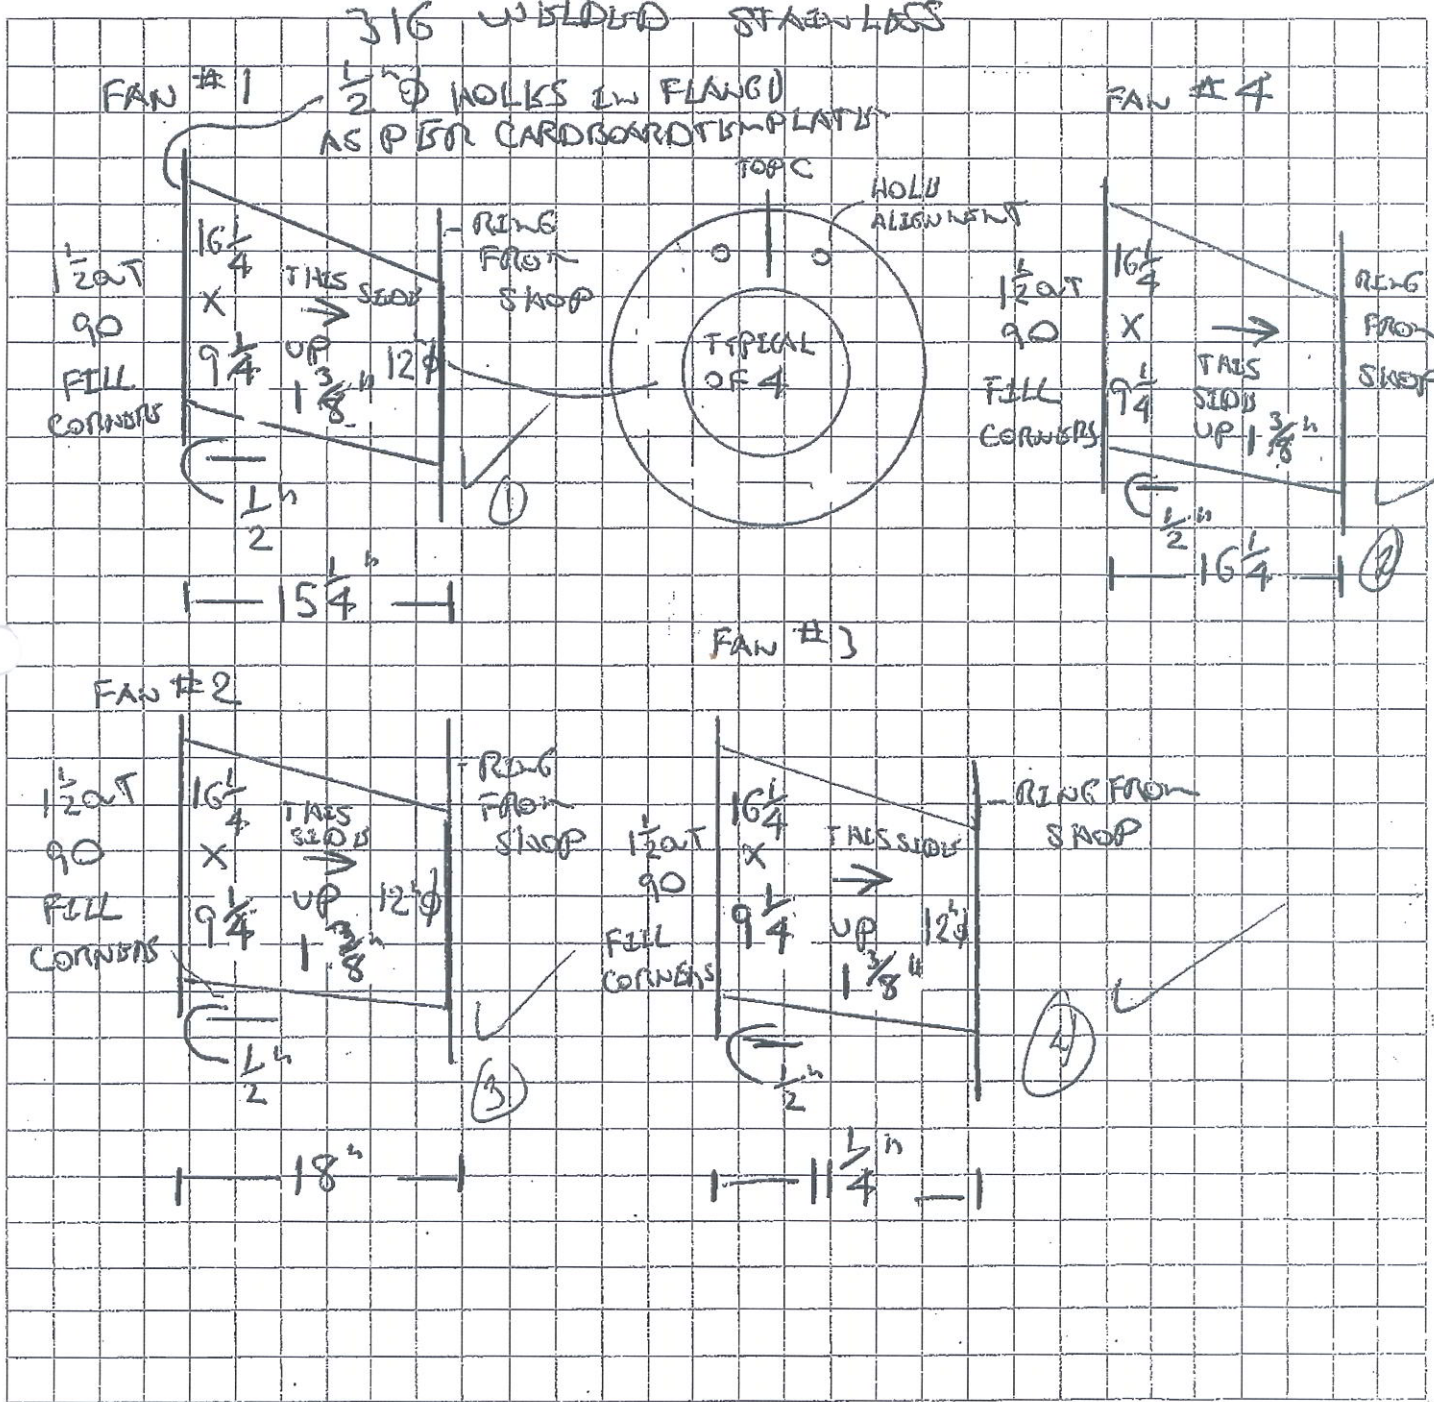 316 WELDED STAINLESS
FAN #1
1/2" Ø HOLES IN FLANGE
AS PER CARDBOARD TEMPLATE
1 1/2 OUT
90
FILL
CORNERS
16 1/4
X
9 1/4
THIS SIDE
→
UP
1 3/8"
12" Ø
RING
FROM
SHOP
1/2"
1
15 1/4"
TOP C
HOLE
ALIGNMENT
TYPICAL
OF 4
FAN #4
1 1/2 OUT
90
FILL
CORNERS
16 1/4
X
9 1/4
→
THIS
SIDE
UP 1 3/8"
RING
FROM
SHOP
1/2"
16 1/4
2
FAN #2
1 1/2 OUT
90
FILL
CORNERS
16 1/4
X
9 1/4
THIS
SIDE
→
UP
1 3/8"
12" Ø
RING
FROM
SHOP
1/2"
3
18"
FAN #3
1 1/2 OUT
90
FILL
CORNERS
16 1/4
X
9 1/4
THIS SIDE
→
UP
1 3/8"
12" Ø
RING FROM
SHOP
1/2"
4
11 1/4"